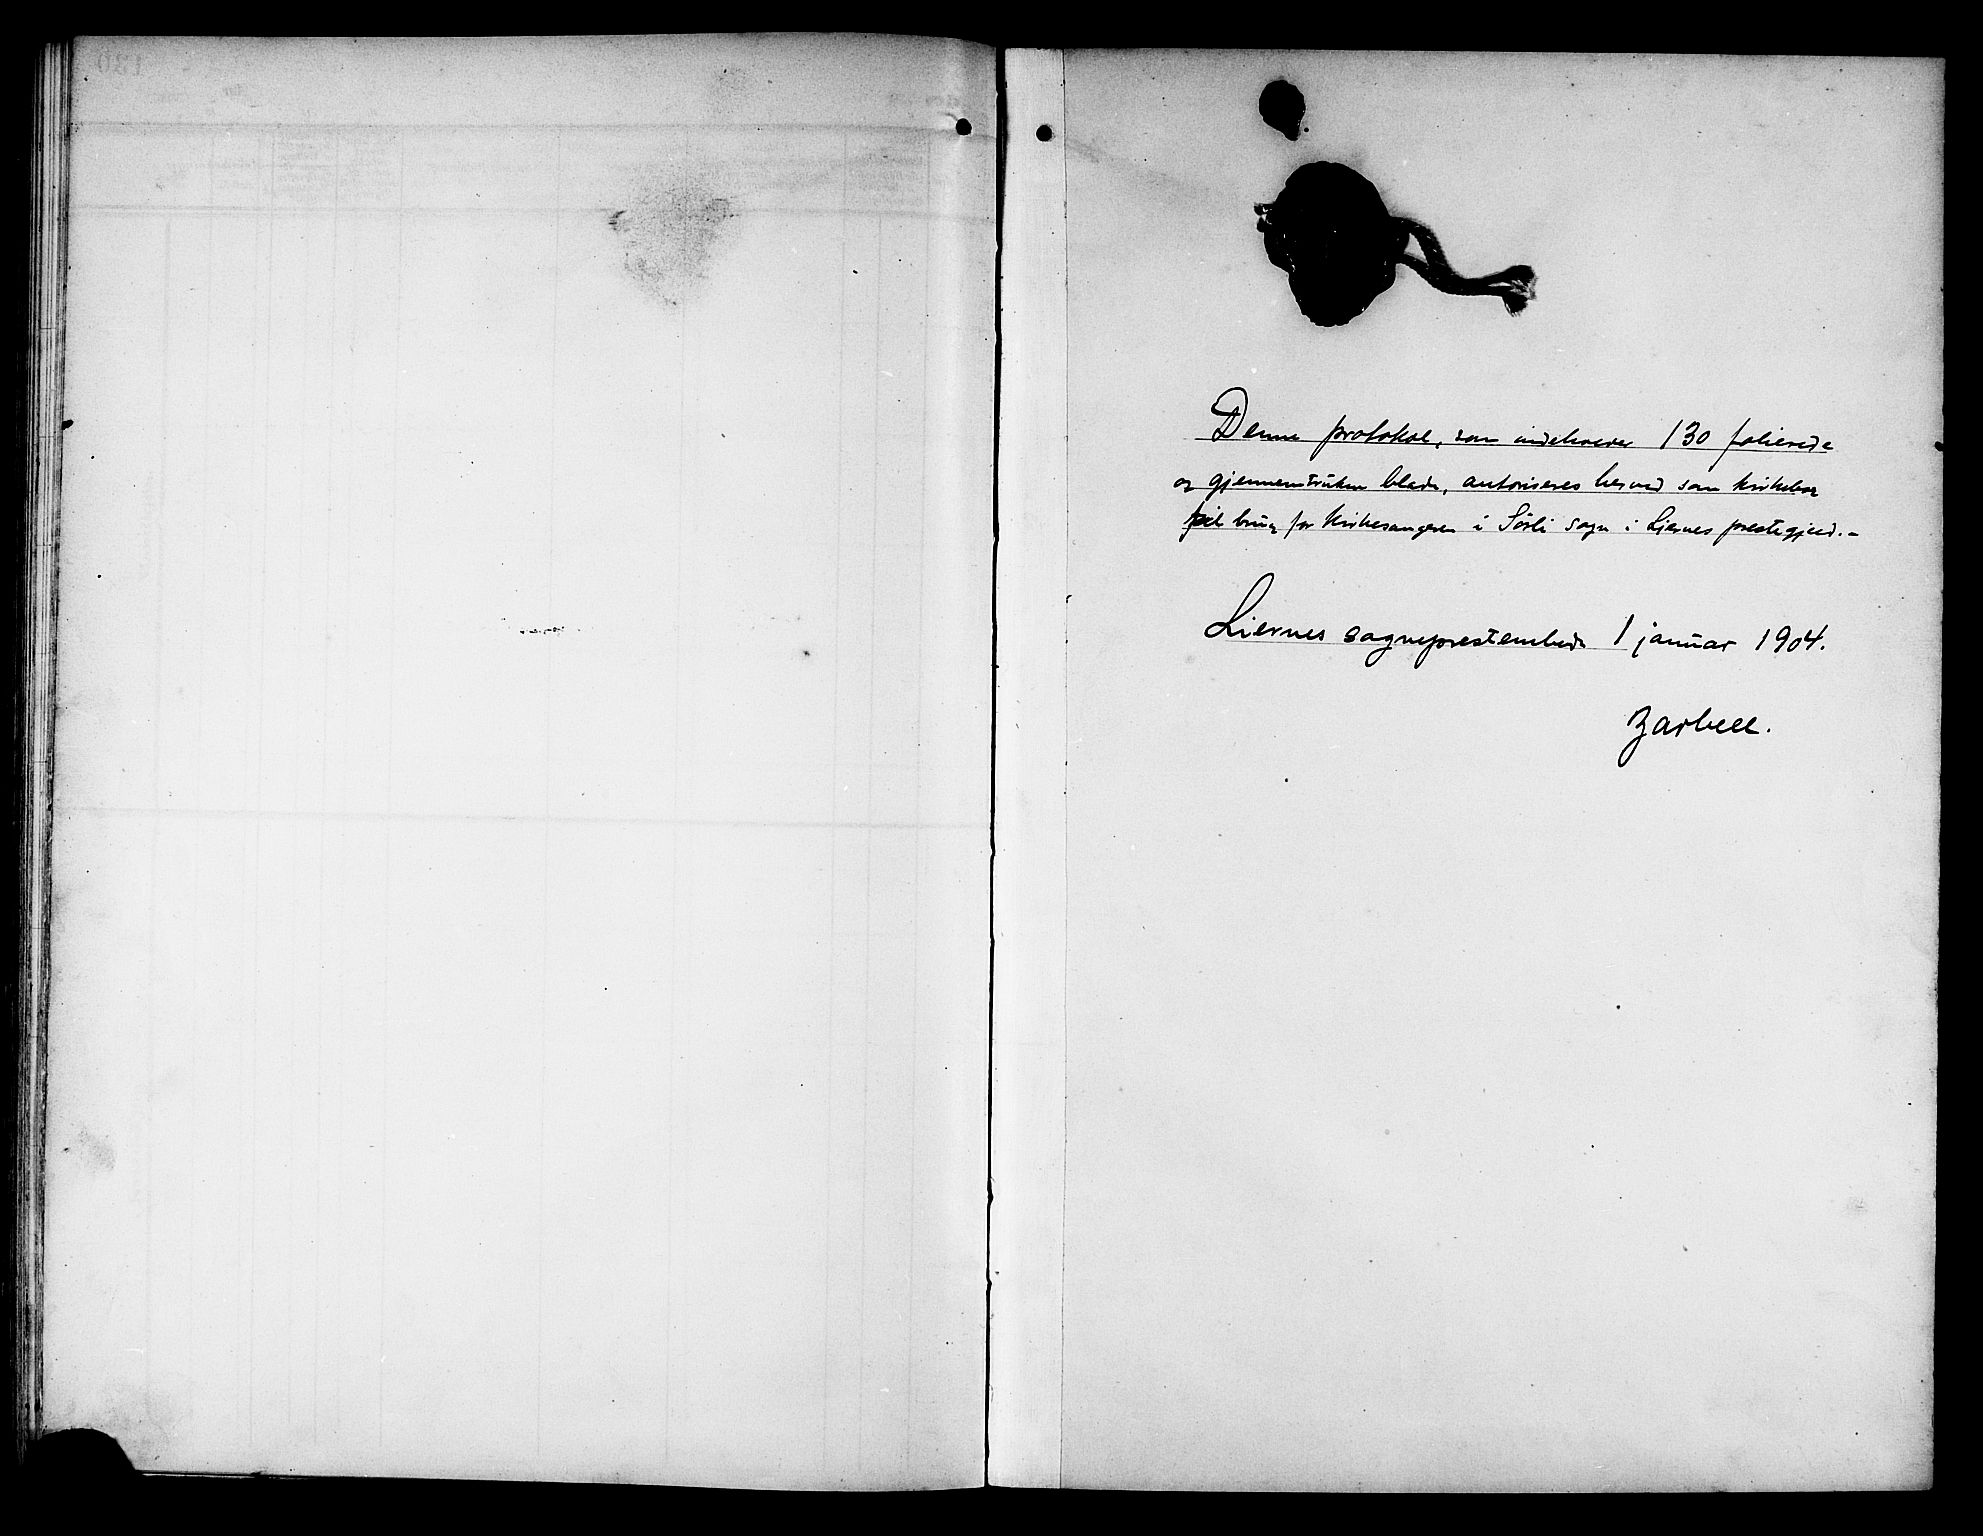 Denne protokol, som indeholder 130 folierede
og gjennemtrukne blade, autoriseres herved som kirkebog
til brug for kirkesangeren i Sørli sogn i Liernes prestegjeld.–
Liernes sogneprestembede 1 januar 1904.
Zarbell.
130